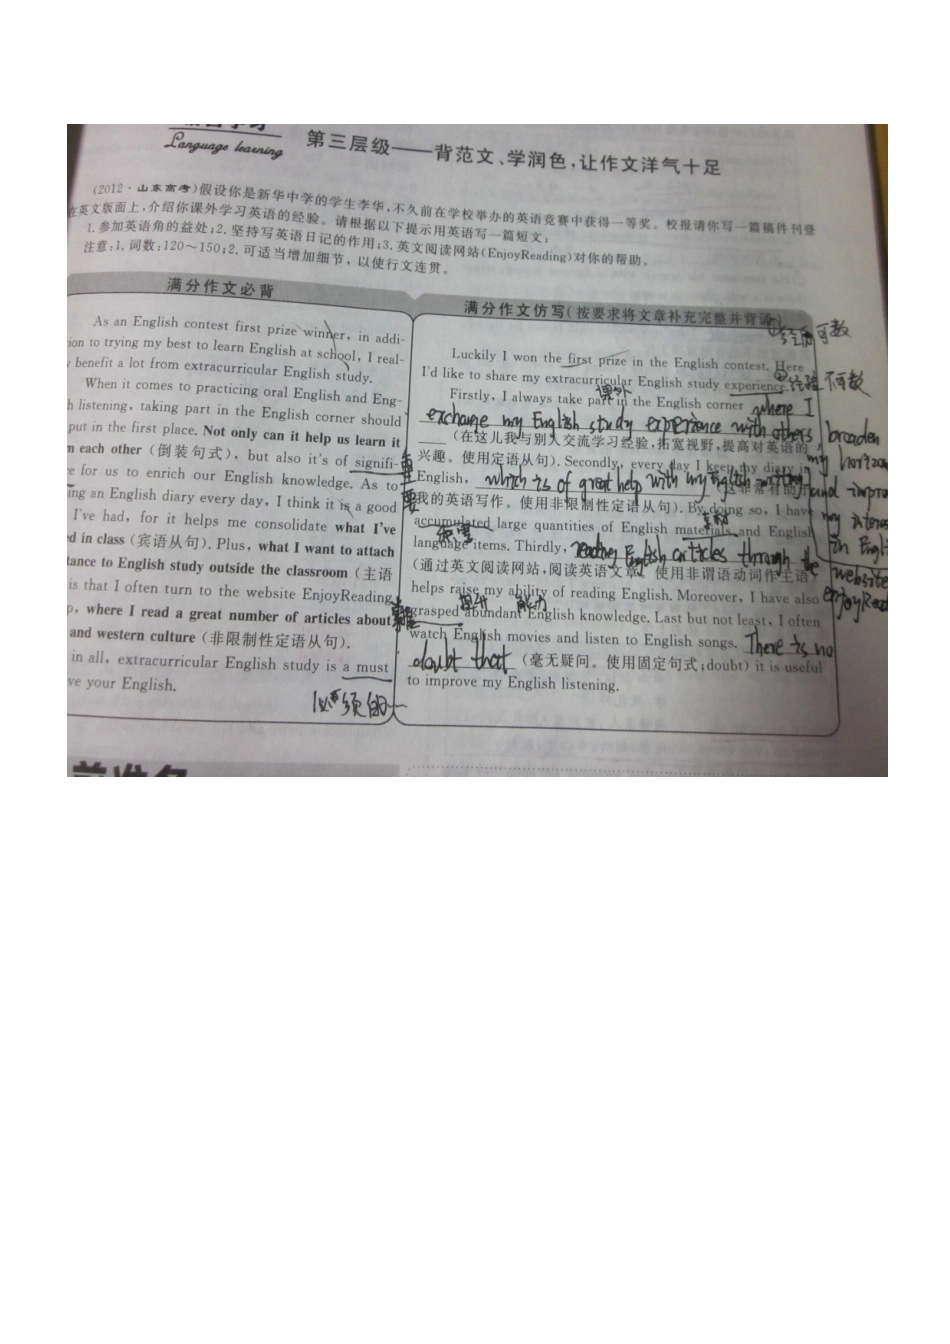 Language learning
第三层级——背范文、学润色,让作文洋气十足
(2012·山东高考)假设你是新华中学的学生李华,不久前在学校举办的英语竞赛中获得一等奖。校报请你写一篇稿件刊登
在英文版面上,介绍你课外学习英语的经验。请根据以下提示用英语写一篇短文:
1.参加英语角的益处;2.坚持写英语日记的作用;3.英文阅读网站(EnjoyReading)对你的帮助。
注意:1.词数:120~150;2.可适当增加细节,以使行文连贯。
满分作文必背
As an English contest first prize winner, in addi-
ion to trying my best to learn English at school, I real-
y benefit a lot from extracurricular English study.
When it comes to practicing oral English and Eng-
h listening, taking part in the English corner should
put in the first place. Not only can it help us learn it
n each other (倒装句式), but also it's of signifi-
重
e for us to enrich our English knowledge. As to
要
ing an English diary every day, I think it is a good
I've had, for it helps me consolidate what I've
d in class (宾语从句). Plus, what I want to attach
tance to English study outside the classroom (主语
is that I often turn to the website EnjoyReading
p, where I read a great number of articles about
掌握
and western culture (非限制性定语从句).
in all, extracurricular English study is a must
ve your English.
必须的
满分作文仿写(按要求将文章补充完整并背诵)
①经历可数
Luckily I won the first prize in the English contest. Here
I'd like to share my extracurricular English study experience.
②经验不可数
课外
Firstly, I always take part in the English corner where I
exchange my English study experience with others, broaden
my horizon
and impro
my interes
in Engli
(在这儿我与别人交流学习经验,拓宽视野,提高对英语的
兴趣。使用定语从句). Secondly, every day I keep my diary in
English, which is of great help with my English writing (这非常有助于
我的英语写作。使用非限制性定语从句). By doing so, I have
素材
accumulated large quantities of English materials and English
积累
language items. Thirdly, reading English articles through the
website
enjoyRead
(通过英文阅读网站,阅读英语文章。使用非谓语动词作主语)
helps raise my ability of reading English. Moreover, I have also
提升 能力
grasped abundant English knowledge. Last but not least, I often
watch English movies and listen to English songs. There is no
doubt that (毫无疑问。使用固定句式;doubt) it is useful
to improve my English listening.